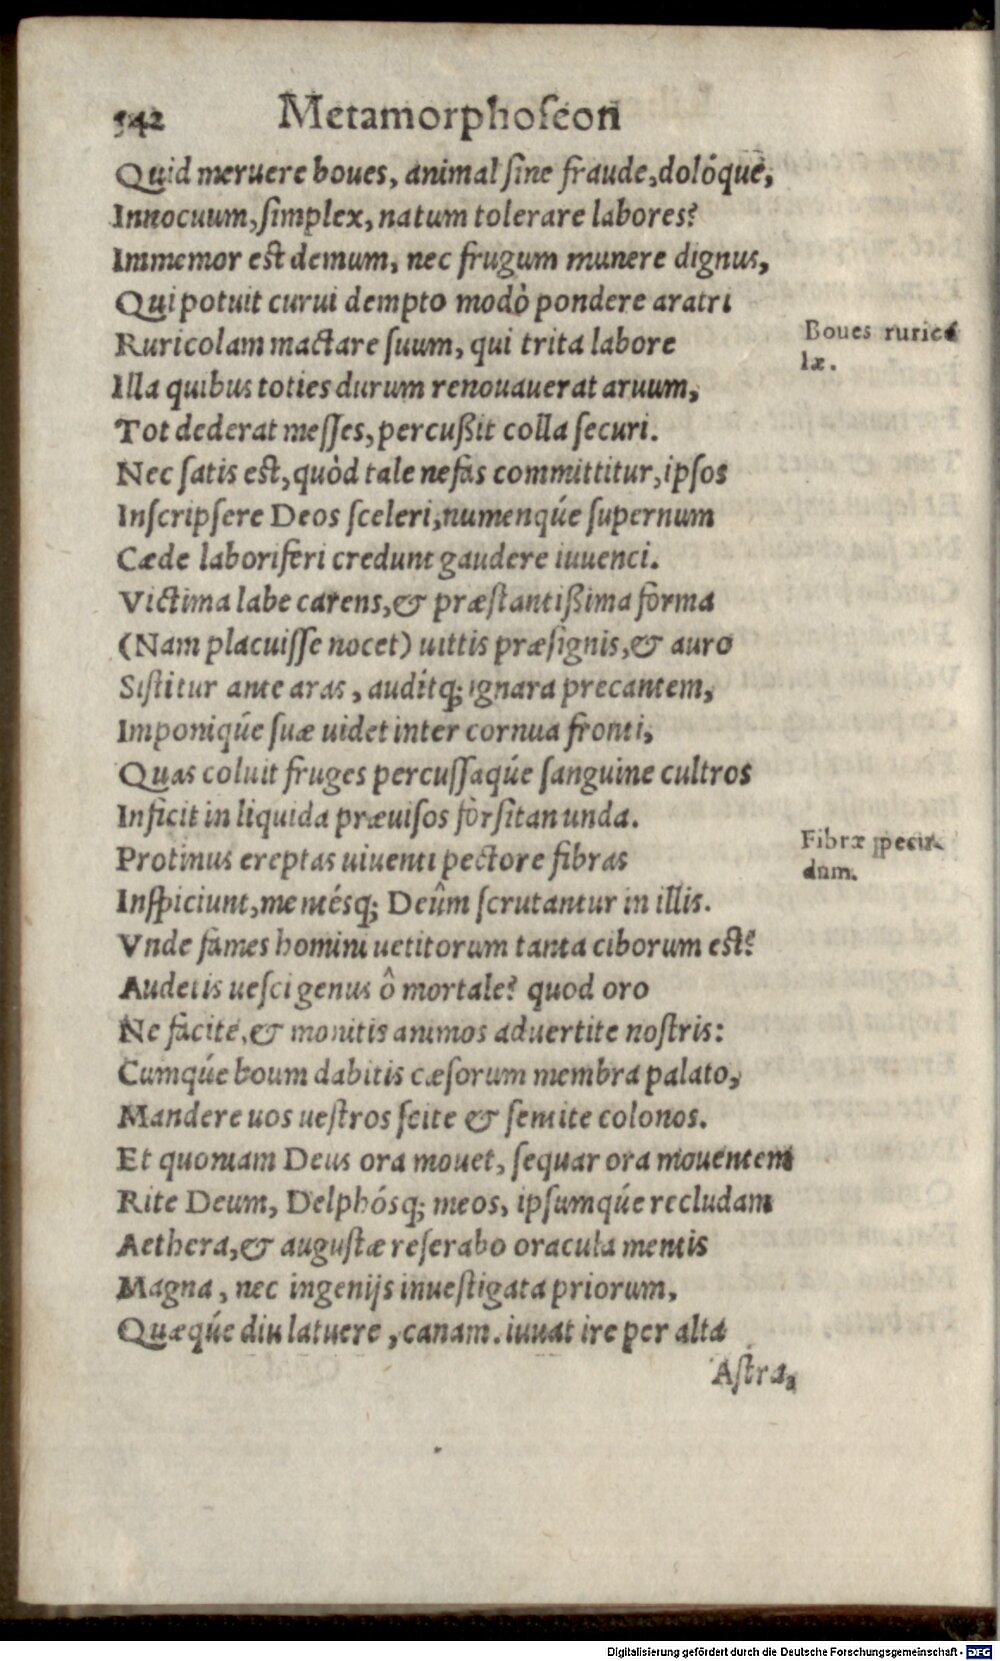 542 Metamorphoſeon
Quid meruere boues, animal ſine fraude, dolóque,
Innocuum, ſimplex, natum tolerare labores?
Immemor eſt demum, nec frugum munere dignus,
Qui potuit curui dempto modò pondere aratri
Ruricolam mactare ſuum, qui trita labore
Boues rurico
læ.
Illa quibus toties durum renouauerat aruum,
Tot dederat meſſes, percußit colla ſecuri.
Nec ſatis eſt, quòd tale nefas committitur, ipſos
Inſcripſere Deos ſceleri, numenqúe ſupernum
Cæde laboriferi credunt gaudere iuuenci.
Victima labe carens, & præſtantißima forma
(Nam placuiſſe nocet) uittis præſignis, & auro
Siſtitur ante aras, auditq; ignara precantem,
Imponiqúe ſuæ uidet inter cornua fronti,
Quas coluit fruges percuſſaqúe ſanguine cultros
Inficit in liquida præuiſos forſitan unda.
Protinus ereptas uiuenti pectore fibras
Fibræ pecu-
dum.
Inſpiciunt, mentésq; Deûm ſcrutantur in illis.
Vnde fames homini uetitorum tanta ciborum eſt?
Audetis ueſci genus ô mortale? quod oro
Ne facite, & monitis animos aduertite noſtris:
Cumqúe boum dabitis cæſorum membra palato,
Mandere uos ueſtros ſcite & ſentite colonos.
Et quoniam Deus ora mouet, ſequar ora mouentem
Rite Deum, Delphósq; meos, ipſumqúe recludam
Aethera, & auguſtæ reſerabo oracula mentis
Magna, nec ingenijs inueſtigata priorum,
Quæqúe diu latuere, canam. iuuat ire per alta
Aſtra,
Digitalisierung gefördert durch die Deutsche Forschungsgemeinschaft - DFG